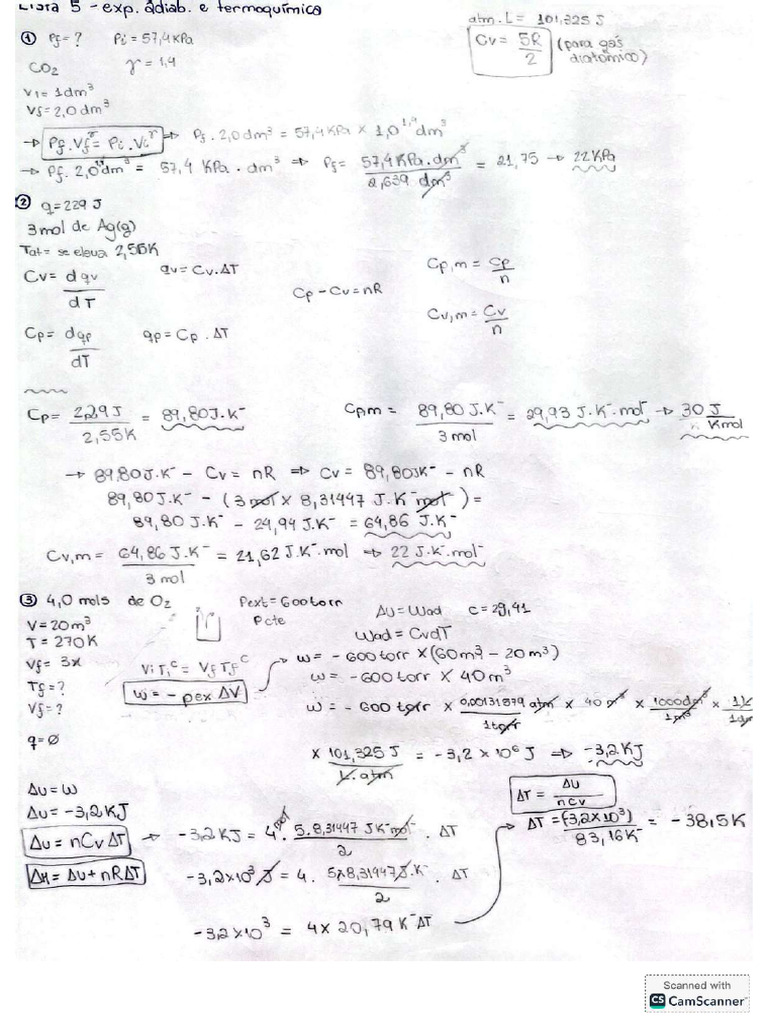 Lista 5 - exp. adiab. e termoquímica
atm. L = 101,325 J
① Pf = ? Pi = 57,4 KPa
Cv = 5R/2 (para gás diatômico)
CO2 γ = 1,4
V1 = 1dm³
Vf = 2,0 dm³
→ Pf. Vf^γ = Pi . Vi^γ ⇒ Pf. 2,0dm³ = 57,4 KPa × 1,0^1,4 dm³
→ Pf. 2,0^1,4 dm³ = 57,4 KPa . dm³ ⇒ Pf = 57,4 KPa. dm³ / 2,639 dm³ = 21,75 → 22 KPa
② q = 229 J
3 mol de Ag(g)
Tat = se eleva 2,55K
Cv = dqv/dT qv = Cv.ΔT
Cp - Cv = nR
Cp,m = Cp/n
Cv,m = Cv/n
Cp = dqp/dT qp = Cp . ΔT
Cp = 229 J / 2,55K = 89,80 J.K⁻
Cp,m = 89,80 J.K⁻ / 3 mol = 29,93 J.K⁻.mol⁻ → 30 J/Kmol
→ 89,80 J.K⁻ - Cv = nR ⇒ Cv = 89,80 JK⁻ - nR
89,80 J.K⁻ - (3 mol × 8,31447 J.K⁻ mol⁻) =
89,80 J.K⁻ - 24,94 J.K⁻ = 64,86 J.K⁻
Cv,m = 64,86 J.K⁻ / 3 mol = 21,62 J.K⁻.mol ⇒ 22 J.K⁻.mol⁻
③ 4,0 mols de O2 Pext = 600 torr ΔU = Wad c = 29,41
V = 20 m³ Pcte
T = 270 K Wad = CvdT
Vf = 3x Vi Ti^c = Vf Tf^c → w = - 600 torr × (60m³ - 20 m³)
Tf = ? w = - pex ΔV w = -600 torr × 40 m³
Vf = ? w = - 600 torr × 0,00131579 atm / 1torr × 40 m³ × 1000dm³ / 1m³ × 1L
q = ∅
× 101,325 J / L.atm = -3,2 × 10⁶ J ⇒ -3,2 KJ
ΔU = w
ΔU = -3,2 KJ
ΔT = ΔU / nCv
ΔU = nCv ΔT → -3,2 KJ = 4 mol . 5.8,31447 JK⁻mol⁻ / 2 . ΔT
ΔT = (-3,2×10³) / 83,16K⁻ = - 38,5K
ΔH = ΔU + nRΔT -3,2×10³ J = 4. 5×8,31447 J.K⁻ / 2 . ΔT
-3,2×10³ = 4 × 20,79 K⁻ ΔT
Scanned with
CS CamScanner